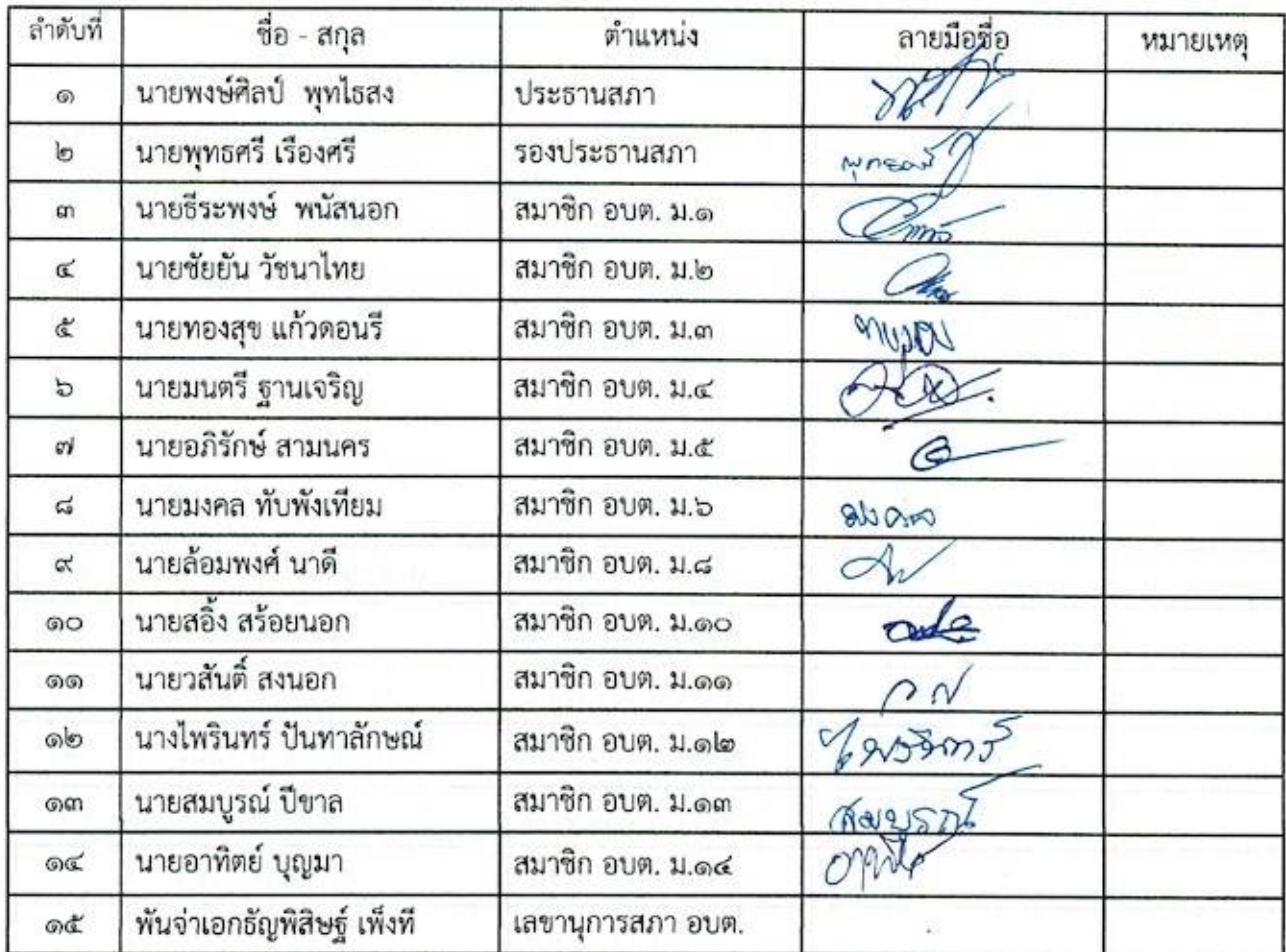 ลำดับที่ ชื่อ - สกุล ตำแหน่ง ลายมือชื่อ หมายเหตุ
๑ นายพงษ์ศิลป์ พุทไธสง ประธานสภา
๒ นายพุทธศรี เรืองศรี รองประธานสภา พุทธศรี
๓ นายธีระพงษ์ พนัสนอก สมาชิก อบต. ม.๑
๔ นายชัยยัน วัชนาไทย สมาชิก อบต. ม.๒
๕ นายทองสุข แก้วดอนรี สมาชิก อบต. ม.๓
๖ นายมนตรี ฐานเจริญ สมาชิก อบต. ม.๔
๗ นายอภิรักษ์ สามนคร สมาชิก อบต. ม.๕
๘ นายมงคล ทับพังเทียม สมาชิก อบต. ม.๖ มงคล
๙ นายล้อมพงศ์ นาดี สมาชิก อบต. ม.๘
๑๐ นายสอิ้ง สร้อยนอก สมาชิก อบต. ม.๑๐
๑๑ นายวสันติ์ สงนอก สมาชิก อบต. ม.๑๑
๑๒ นางไพรินทร์ ปันทาลักษณ์ สมาชิก อบต. ม.๑๒ ไพรินทร์
๑๓ นายสมบูรณ์ ปีขาล สมาชิก อบต. ม.๑๓ สมบูรณ์
๑๔ นายอาทิตย์ บุญมา สมาชิก อบต. ม.๑๔
๑๕ พันจ่าเอกธัญพิสิษฐ์ เพ็งที เลขานุการสภา อบต.